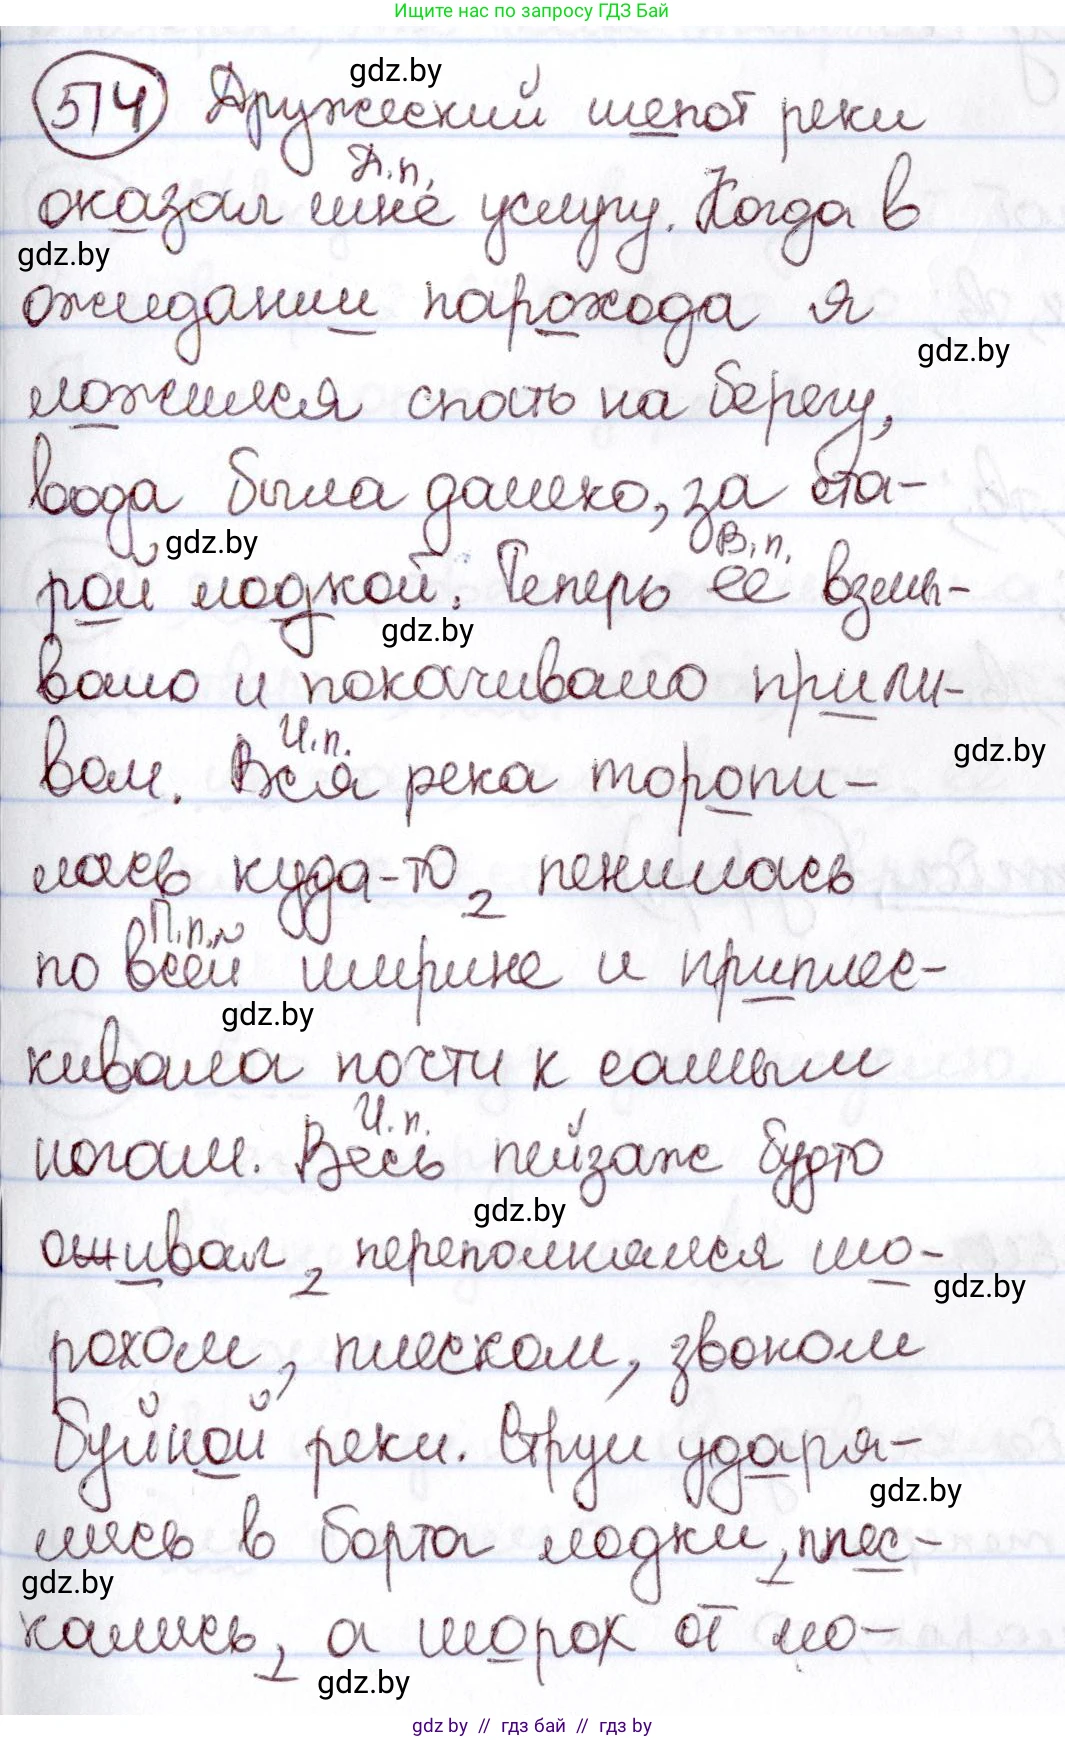 Ищите нас по запросу ГДЗ Бай
gdz.by
514 Дружеский шепот реки
Д.п.
оказал мне услугу. Когда в
gdz.by
ожидании парохода я
gdz.by
ложился спать на берегу,
вода была далеко, за ста-
gdz.by
В.п.
рой лодкой. Теперь её взмы-
gdz.by
вало и покачивало прили-
И.п.
gdz.by
вом. Вся река торопи-
лась куда-то, пенилась
П.п.
по всей ширине и приплес-
gdz.by
кивала почти к самым
И.п.
ногам. Весь пейзаж будто
gdz.by
оживал, переполнялся шо-
gdz.by
рохом, плеском, звоном
буйной реки. Струи ударя-
gdz.by
лись в борта лодки, плес-
gdz.by
кались, а шорох от мо-
gdz.by
gdz by // гдз бай // gdz by